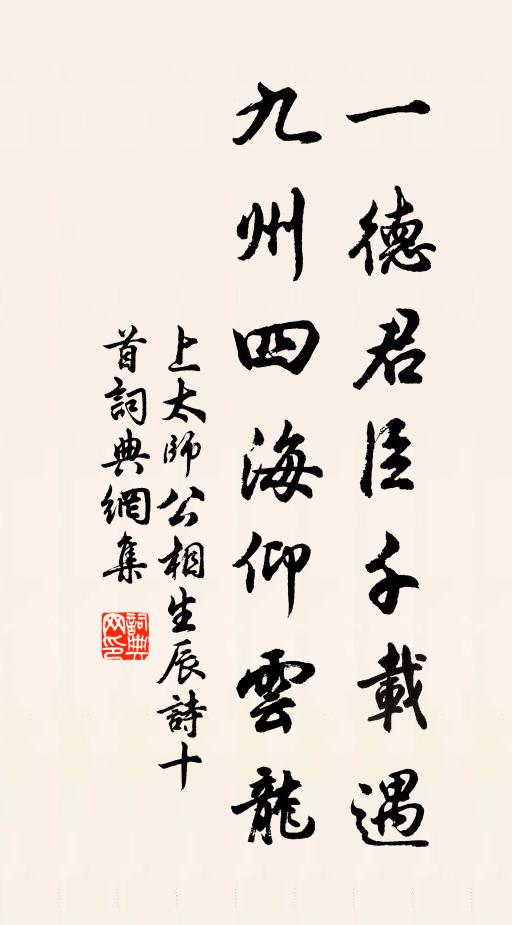 一德君臣千載遇
九州四海仰雲龍
上太師公相生辰詩十
首詞典網集
詞典
网印